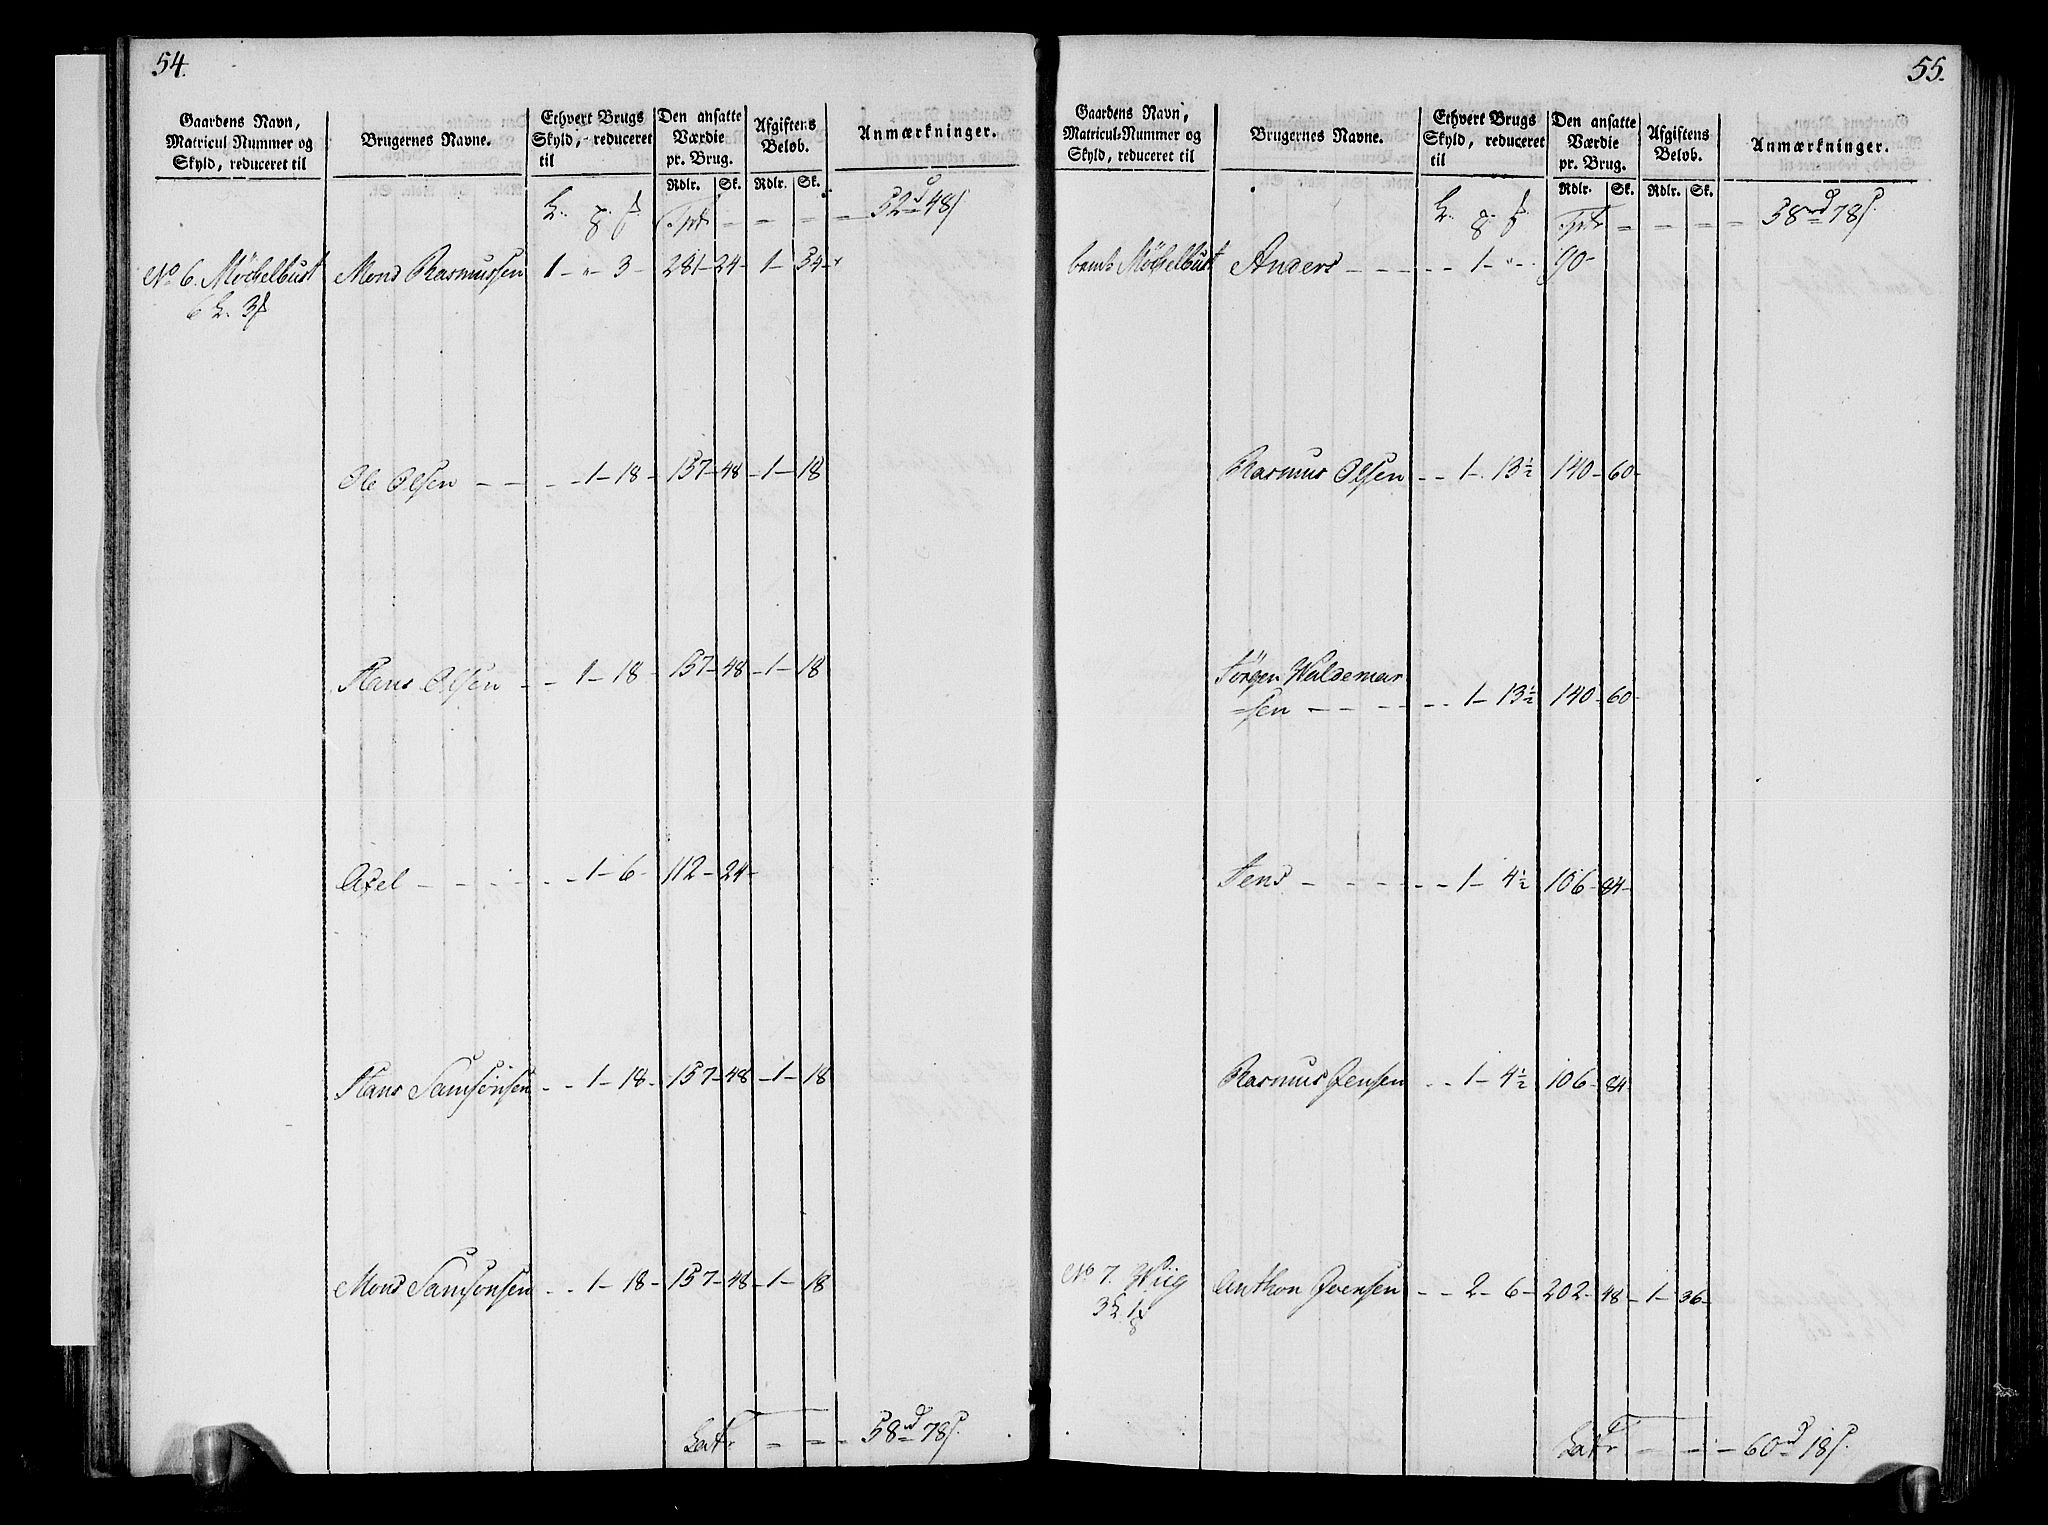 54.
Gaardens Navn,
Matricul Nummer og
Skyld, reduceret til
Brugernes Navne.
Ethvert Brugs
Skyld, reduceret
til
Den ansatte
Værdie
pr. Brug.
Rdlr. Sk.
Afgiftens
Beløb.
Rdlr. Sk.
Anmærkninger.
52 48
No 6. Möchelbust Mons Rasmussen 1 - " 3 - 281 - 24 - 1 - 54
6 3
Ole Olsen - - - 1 - 18 - 157 - 48 - 1 - 18
Hans Olsen - - 1 - 18 - 157 - 48 - 1 - 18
Axel - - - - - 1 - 6 - 112 - 24 -
Hans Samsonsen - - 1 - 18 - 157 - 48 - 1 - 18
Mons Samsonsen - - 1 - 18 - 157 - 48 - 1 - 18
Latr - - - 58 78
55.
Gaardens Navn,
Matricul-Nummer og
Skyld, reduceret til
Brugernes Navne.
Ethvert Brugs
Skyld, reduceret
til
Den ansatte
Værdie
pr. Brug.
Rdlr. Sk.
Afgiftens
Beløb.
Rdlr. Sk.
Anmærkninger.
58 78
Möchelbust Anders - - - - 1 - " - 90 -
Rasmus Olsen - - 1 - 13½ 140 - 60 -
Jörgen Waldemar
=sen - - - - - 1 - 13½ 140 - 60 -
Jens - - - - - 1 - 4½ 106 - 84 -
Rasmus Jensen - - 1 - 4½ 106 - 84
No 7. Wiig Anthon Jensen - - 2 - 6 - 202 - 48 - 1 - 36 -
3 1
Latr - - - 60 18